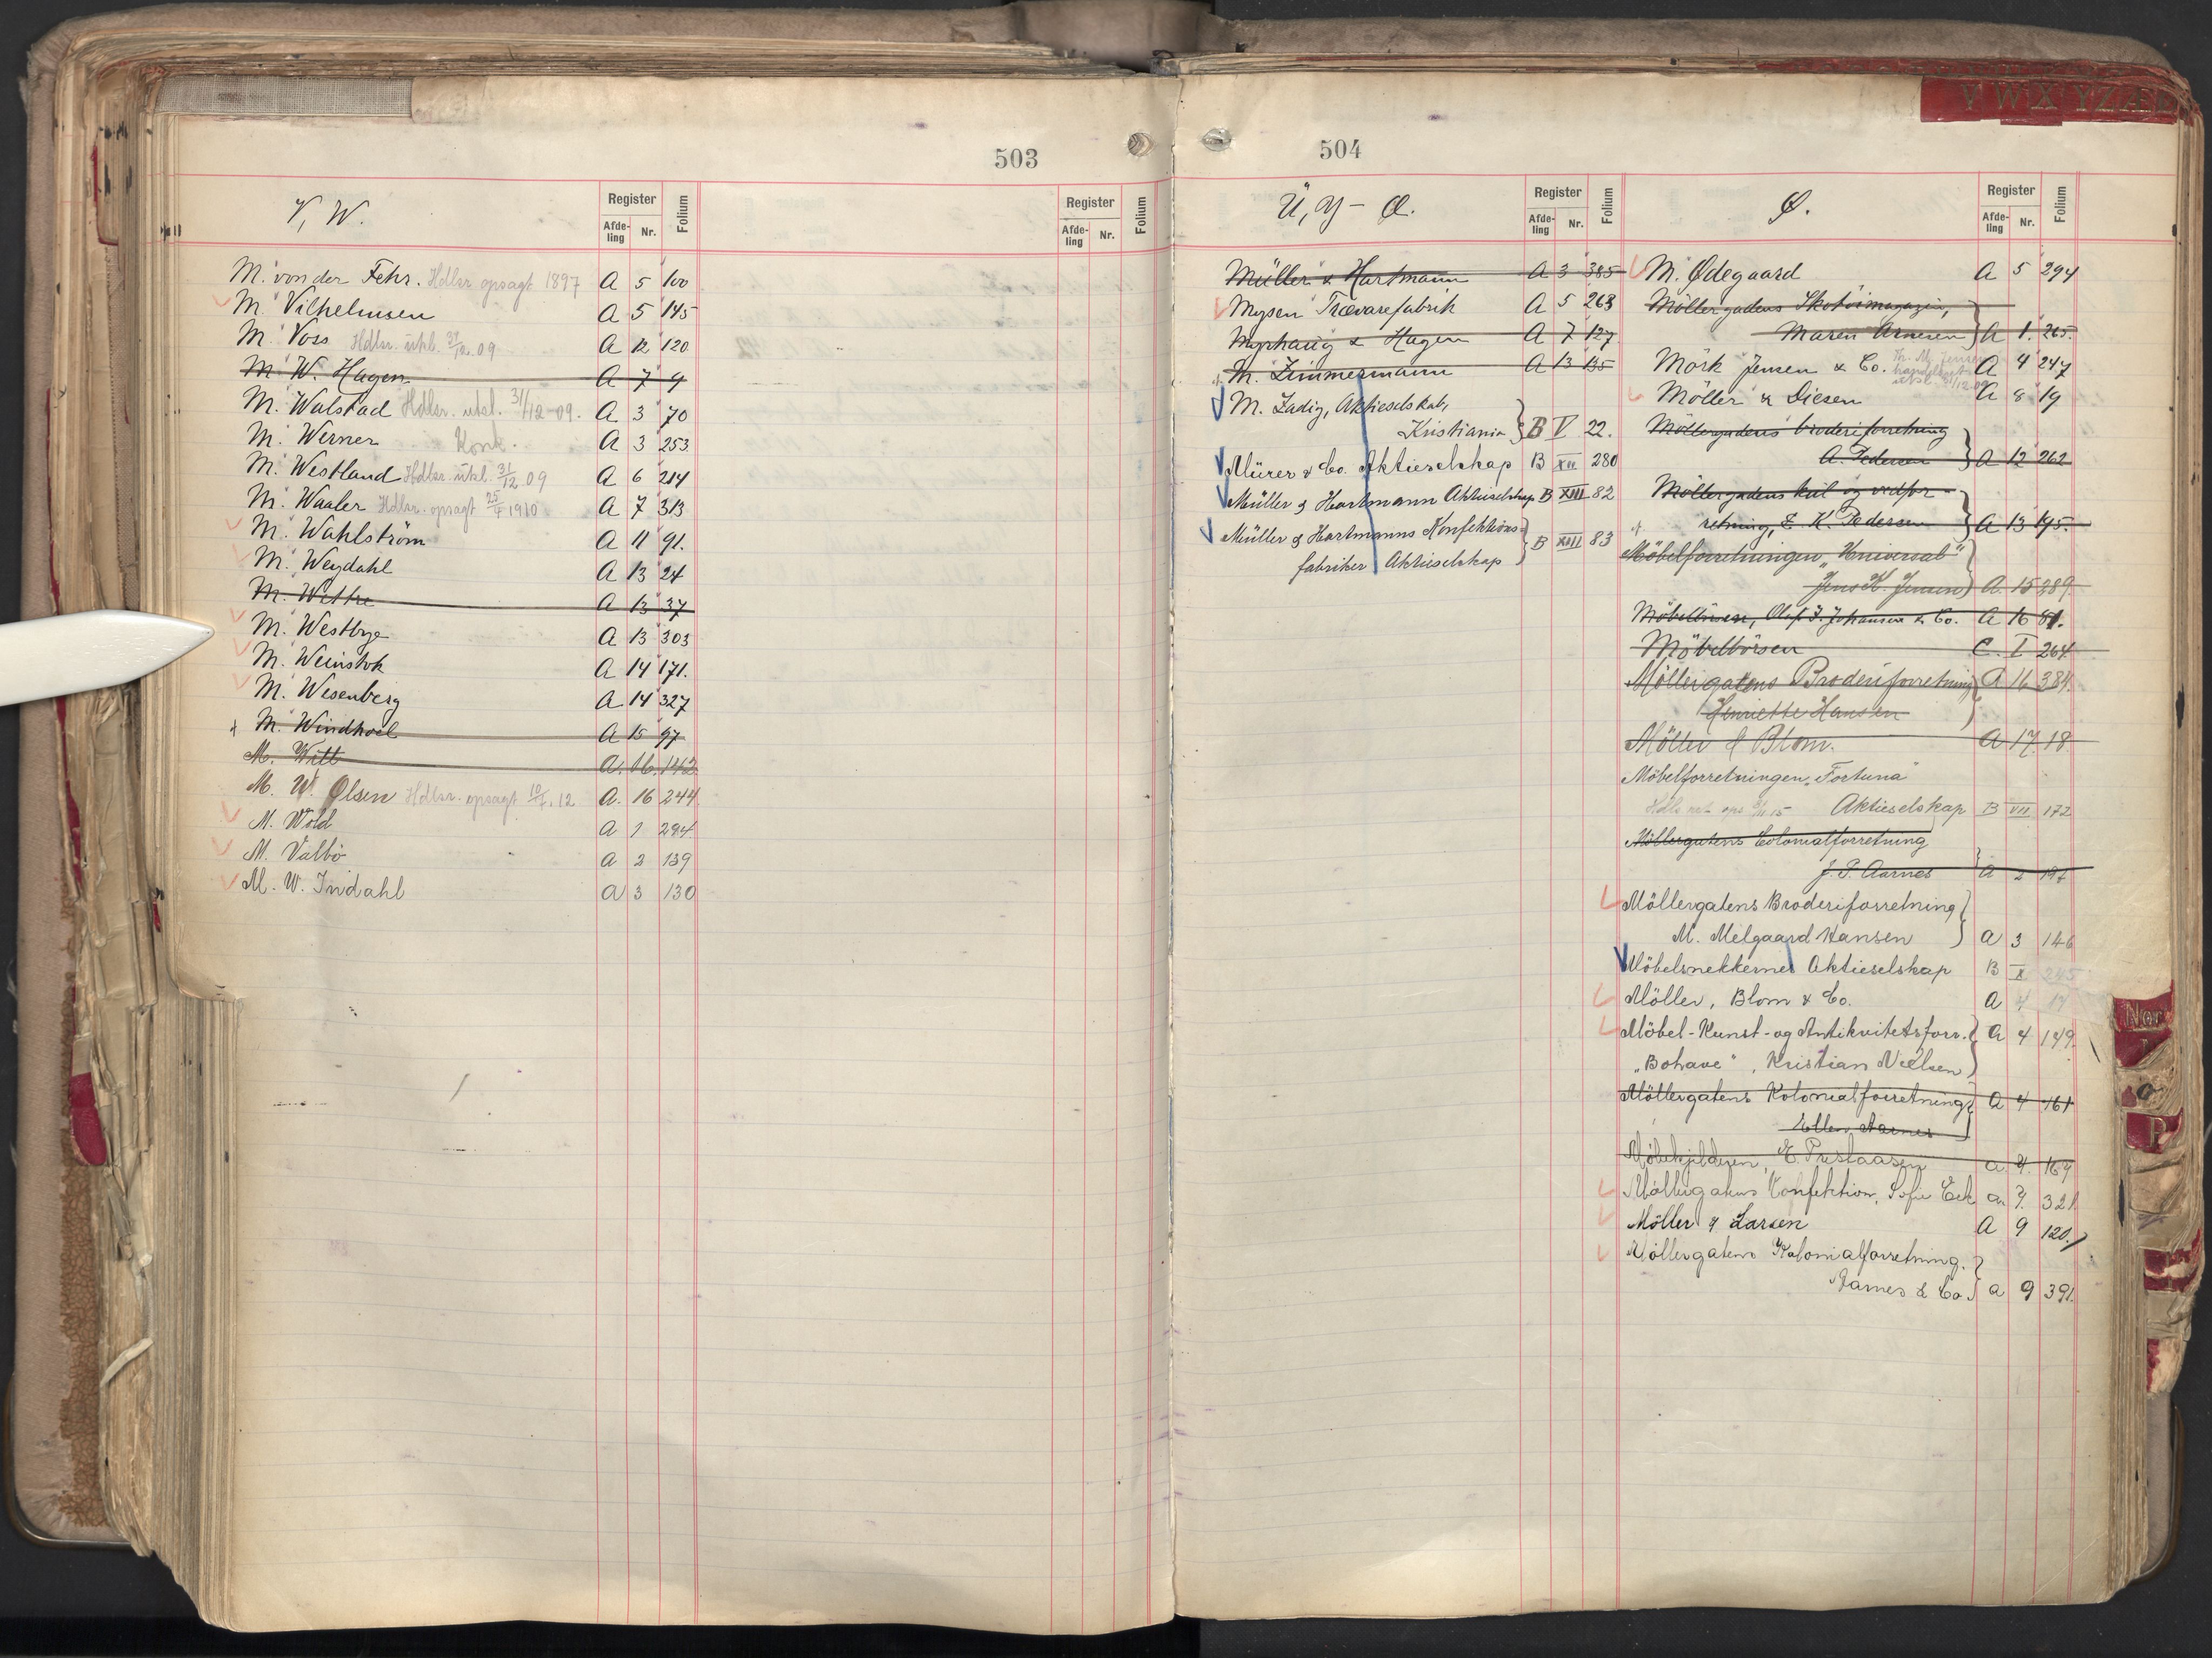 503
V, W.
Register
Afde-ling Nr. Folium
Register
Afde-ling Nr. Folium
M. von der Fehr. Hdlsr. opsagt 1897 A 5 100
M. Vilhelmsen A 5 145
M. Voss Hdlsr. utsl. 31/12.09 A 12 120
M. W. Hagen A 7 9
M. Walstad Hdlsr. utsl. 31/12-09. A 3 70
M. Werner Konk. A 3 253
M. Westland Hdlsr. utsl. 31/12 09 A 6 214
M. Waaler Hdlsr. opsagt 25/7 1910 A 7 313
M. Wahlström A 11 91.
M. Weydahl A 13 24
M. Wettre A 13 37
M. Westbye A 13 303
M. Weinstok A 14 171.
M. Wesenberg A 14 327
M. Windhoel A 15 97
M. Witt A. 16. 142
M. W. Olsen Hdlsr. opsagt 10/7. 12 A. 16 244
M. Wold A 1 294
M. Valbö A 2 139
M. W. Indahl A 3 130
504
V W X Y Z Æ
Ü, Y - Æ.
Register
Afde-ling Nr. Folium
Müller & Hartmann A 3 385
Mysen Trævarefabrik A 5 263
Myrhaug & Hagen A 7 127
M. Zimmermann A 13 135
M. Zadig, Aktieselskab,
Kristiania B V 22.
Mürer & Co. Aktieselskap B XII 280
Müller & Hartmann Aktieselskap B XIII 82
Müller & Hartmanns Konfektions-
fabriker Aktieselskap B XIII 83
Ø.
Register
Afde-ling Nr. Folium
M. Ødegaard A 5 294
Möllergadens Skotöimagazin,
Maren Arnesen A 1. 265.
Mörk Jensen & Co. A 4 247
Möller & Diesen A 8 19
Möllergadens broderiforretning
A. Pedersen A 12 262
Möllergadens kul og vedfor-
retning, E. K. Pedersen A 13 195.
Möbelforretningen "Universal"
Jens K. Jensen A. 15 289.
Möbelbörsen, Olaf J. Johansen & Co. A 16 81.
Möbelbörsen C. I 264
Möllergatens Broderiforretning A 16 384.
Henriette Hansen
Möller & Blom. A 17. 18
Möbelforretningen "Fortuna"
Aktieselskap B VII 172
Möllergatens Colonialforretning
J. P. Aarnes A 2 197
Möllergatens Broderiforretning
M. Melgaard Hansen A 3 146
Möbelsnekkernes Aktieselskap B X 245
Möller, Blom & Co. A 4 17
Möbel-Kunst-og Antikvitetsforr. A 4 149.
"Bohave", Kristian Nielsen
Möllergatens Kolonialforretning A 4 161
Ellen Aarnes
Möbelkjelderen, E. Prestaasen A 4. 169
Möllergatens Konfektion, Sofie Eek A 7. 321.
Möller & Larsen A 9 120.
Möllergatens Kolonialforretning.
Aarnes & Co. A 9 391.
Nor
O
P